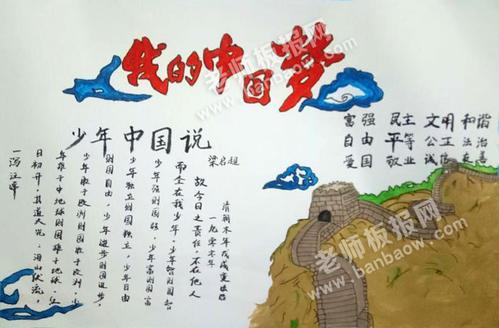 我的中国梦
富强 民主 文明 和谐
自由 平等 公正 法治
爱国 敬业 诚信 友善
少年中国说
梁启超
一九零零年
故今日之责任,不在他人
而全在我少年,少年智则国智
少年强则国强,少年富则国富
少年独立则国独立,少年自由
则国自由,少年进步则国进步,
少年胜于欧洲则国胜于欧洲,少
年雄于地球则国雄于地球,红
日初升,其道大光,河出伏流,
一泻汪洋
老师板报网
www.banbaow.com
老师板报网
www.banbaow.com